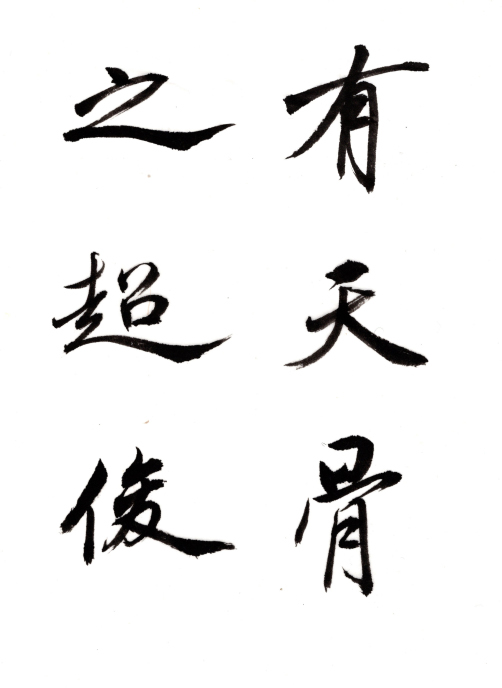 有天骨
之超俊